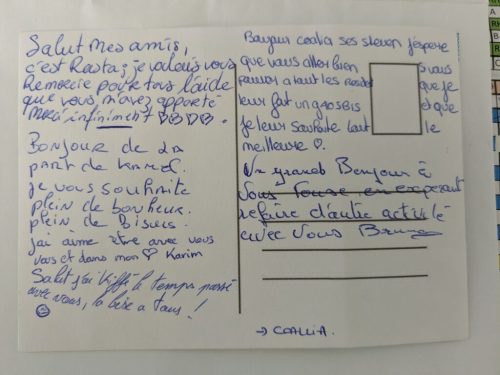 Salut Mes amis,
c'est Rasta, je voulais vous
Remercie pour tous l'aide
que vous m'avez apporté
Merci infiniment
BONJOUR DE LA
PART de Karim.
je vous souhaite
plein de bonheur.
plein de Bisous.
j'ai aime être avec vous
vous et dans mon ♡ Karim
Salut j'ai kiffé le temps passé
avec vous, la bise a tous !
Bonjour coalia ses steven j'espère
que vous aller bien si vous
a tout les
leur fait un gros bis et que
Je leur souhaite tout le
meilleure ♡.
Un grand Bonjour à
Vous Tous en esperant
refaire d'autre activité
avec vous Bruno
→ COALLIA.